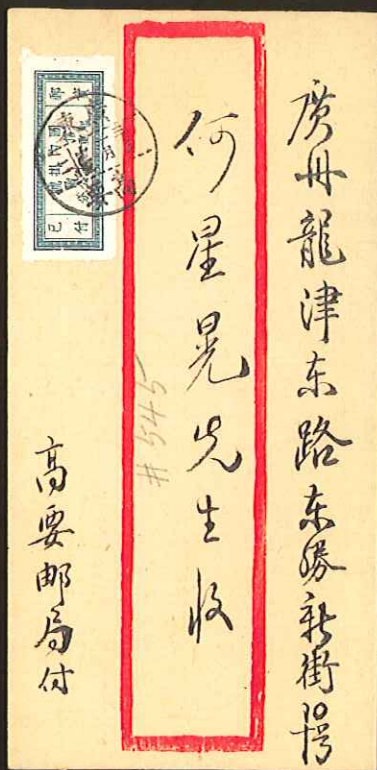 廣州龍津东路东勝新街10号
何星晃先生收
#545
高要邮局付